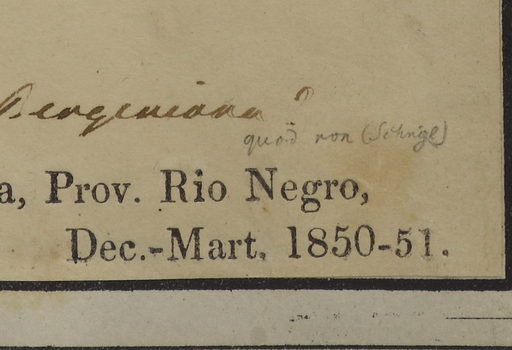 Bergeniana ?
quoad non (Schrigl)
a, Prov. Rio Negro,
Dec.-Mart. 1850-51.